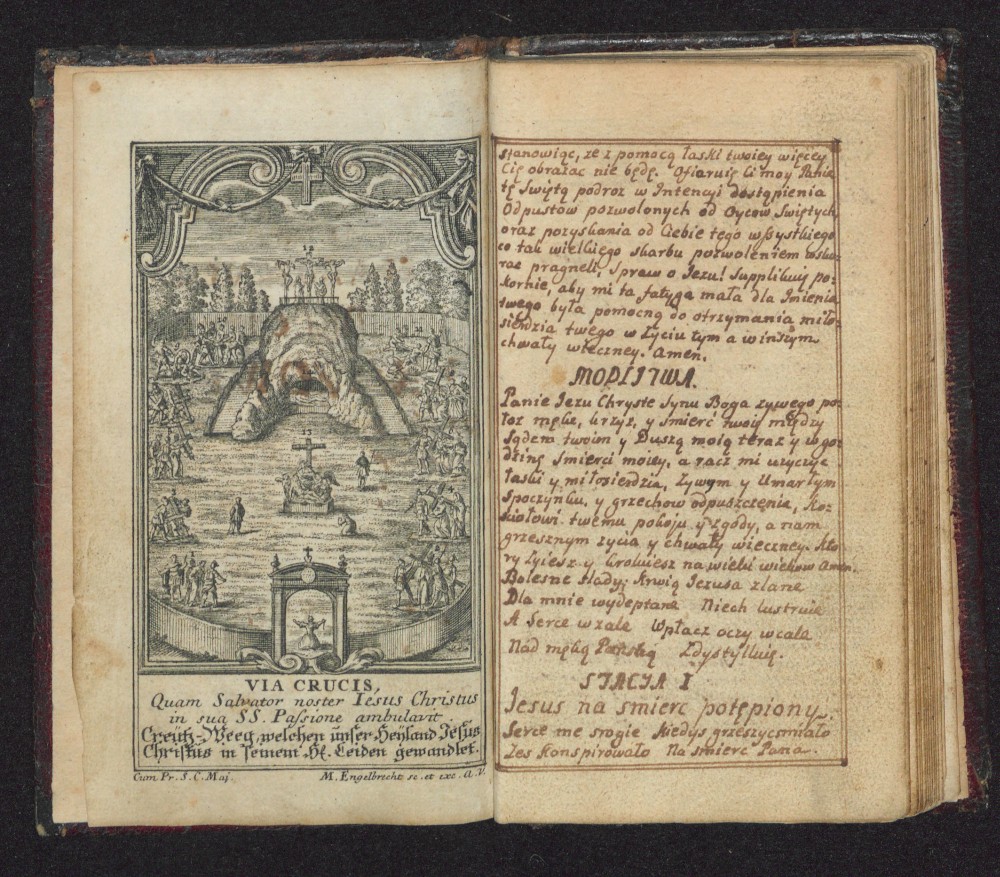 12
13
VIA CRUCIS,
Quam Salvator noster Iesus Christus
in sua SS. Passione ambulavit
Creütz-Weeg, welchen unser Heyland Jesus
Christus in seinem Hl. Leiden gewandlet.
Cum Pr. S. C. Maj.
M. Engelbrecht sc. et exc. A.V.
stanowiąc, ze z pomocą łaski twoiey więcey
Cię obrazac nie będę. Ofiaruię Ci moy Panie
tę Swiętą podroz w Intencyi dostąpienia
Odpustow pozwolonych od Oycow Swiętych,
oraz pozyskania od Ciebie tego wszystkiego
co tak wielkiego skarbu pozwoleniem
rac pragneli, Spraw o Jezu! Supplikuię po-
kornie, aby mi ta fatyga mała dla Imienia
twego była pomocną do otrzymania miło-
sierdzia twego w zyciu tym a w inszym
chwały wieczney. Amen.
MODLITWA.
Panie Jezu Chryste Synu Boga zywego po-
łoz mękę, krzyz, y smierc twoię między
Sądem twoim y Duszą moią teraz y w go-
dzinę smierci moiey, a racz mi uzyczyc
łaski y miłosierdzia, Zywym y Umarłym
spoczynku, y grzechow odpuszczenia, Ko-
sciołowi twemu pokoju y zgody, a nam
grzesznym zycia y chwały wieczney. Kto-
ry zyiesz y kroluiesz na wieki wiekow Amen.
Bolesne slady; Krwią Jezusa zlane
Dla mnie wydeptane Niech lustruie
A Serce w zale Wpłacz oczy w cale
Nad męką Panską Zdystylluię.
STACIA I
Jesus na smierc potępiony.
Serce me srogie kiedys grzeszyc smiało
Zes konspirowało Na smierc Pana.